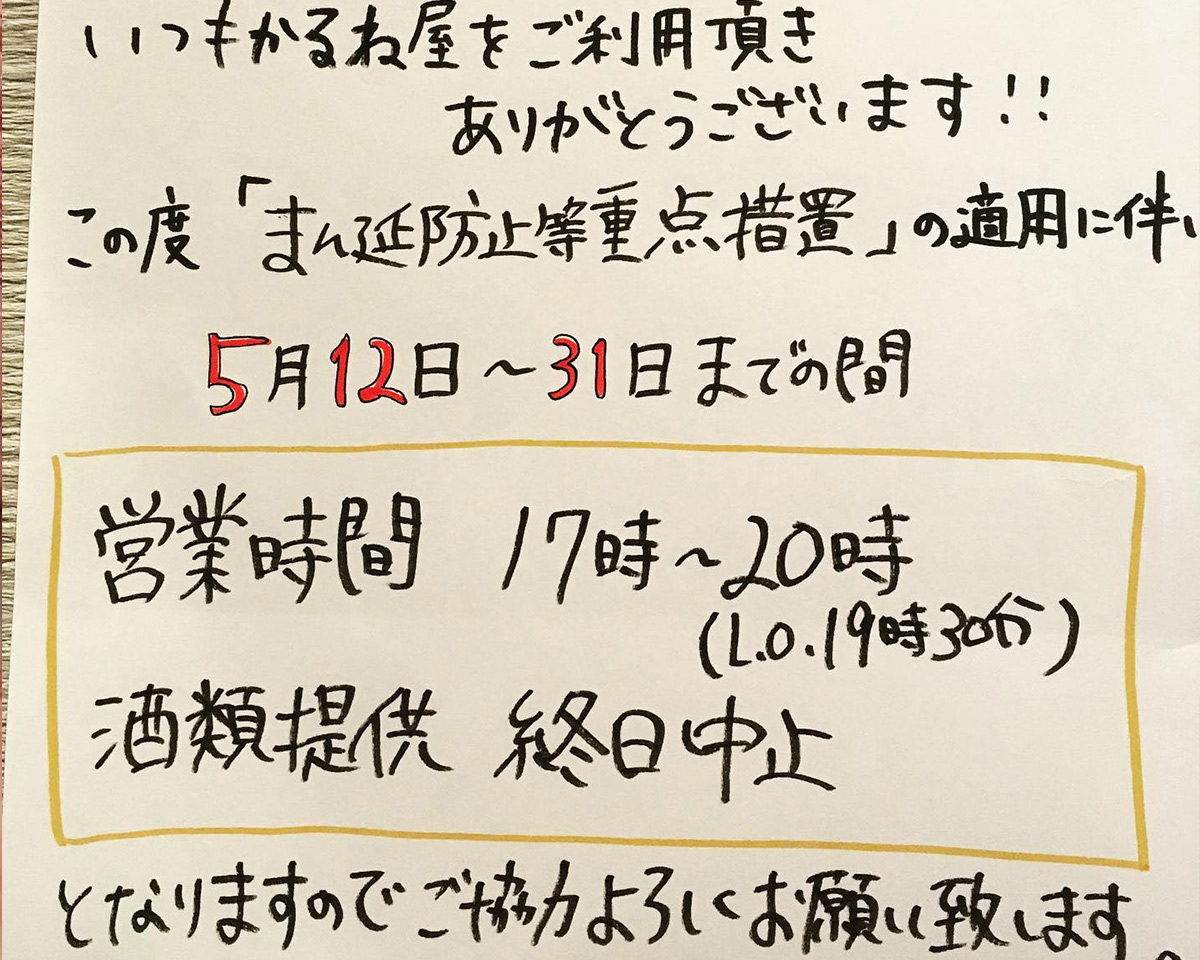 いつもかるね屋をご利用頂き
ありがとうございます!!
この度「まん延防止等重点措置」の適用に伴い
5月12日~31日までの間
営業時間 17時~20時
(L.O.19時30分)
酒類提供 終日中止
となりますのでご協力よろしくお願い致します。